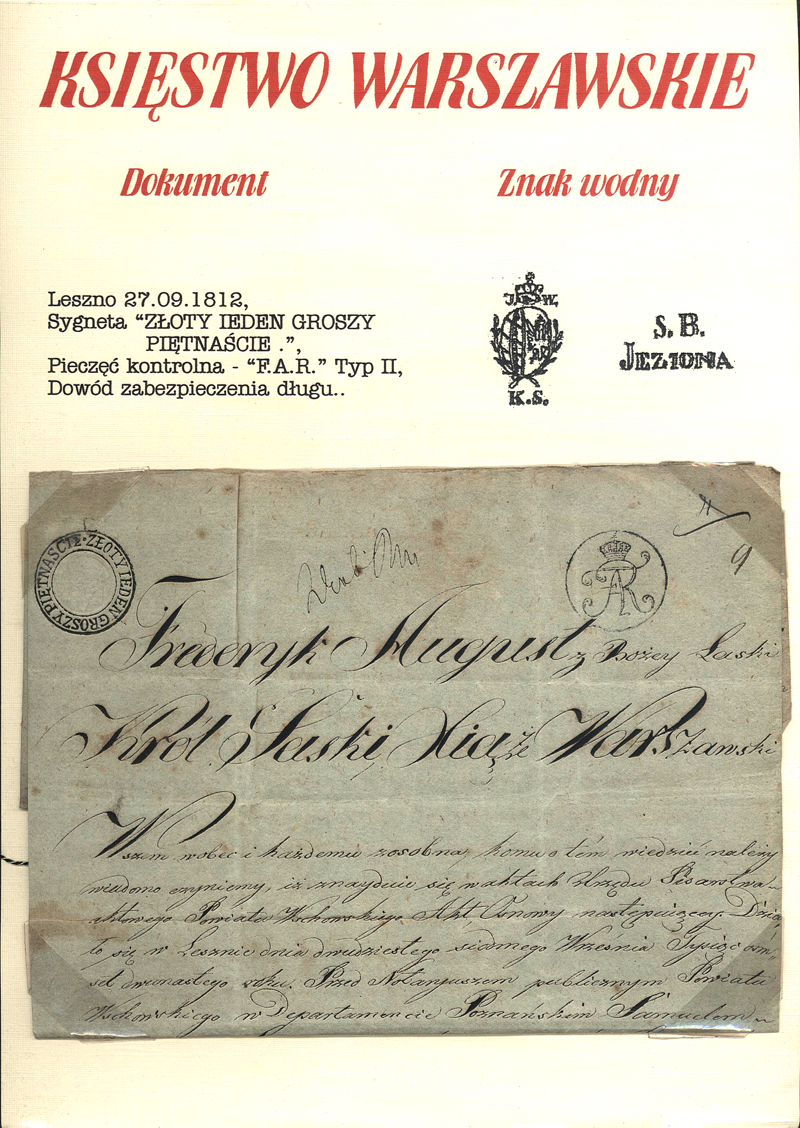 KSIĘSTWO WARSZAWSKIE
Dokument
Znak wodny
Leszno 27.09.1812,
Sygneta “ZŁOTY IEDEN GROSZY
PIĘTNAŚCIE .”,
Pieczęć kontrolna - “F.A.R.” Typ II,
Dowód zabezpieczenia długu..
J. W.
K.S.
S. B.
JEZIONA
ZŁOTY IEDEN GROSZY PIĘTNAŚCIE
FAR
9
Frederyk August z Bożey Łaski
Król Saski Xiąże Warszawski
Wszem wobec i każdemu zosobna, komu o tém wiedzieć należy
wiadomo czyniemy, iż znayduie się w aktach Urzędu Pisarstwa
aktowego Powiatu Wschowskiego Akt, Osnowy następuiącey. Dzia-
ło się w Lesznie dnia dwudziestego siódmego Września Tysiąc ośm-
set dwunastego roku. Przed Notaryuszem publicznym Powiatu
Wschowskiego w Departamencie Poznańskim Samuelem